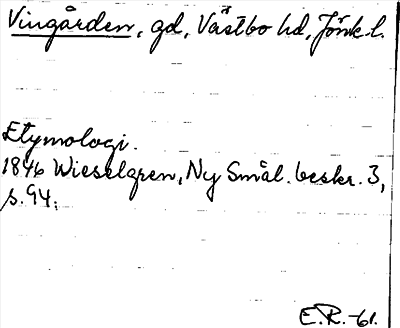 Vingården, gd, Västbo hd, Jönk. l.
Etymologi.
1846 Wieselgren, Ny Smål. beskr. 3,
s. 94.
E.R.-61.